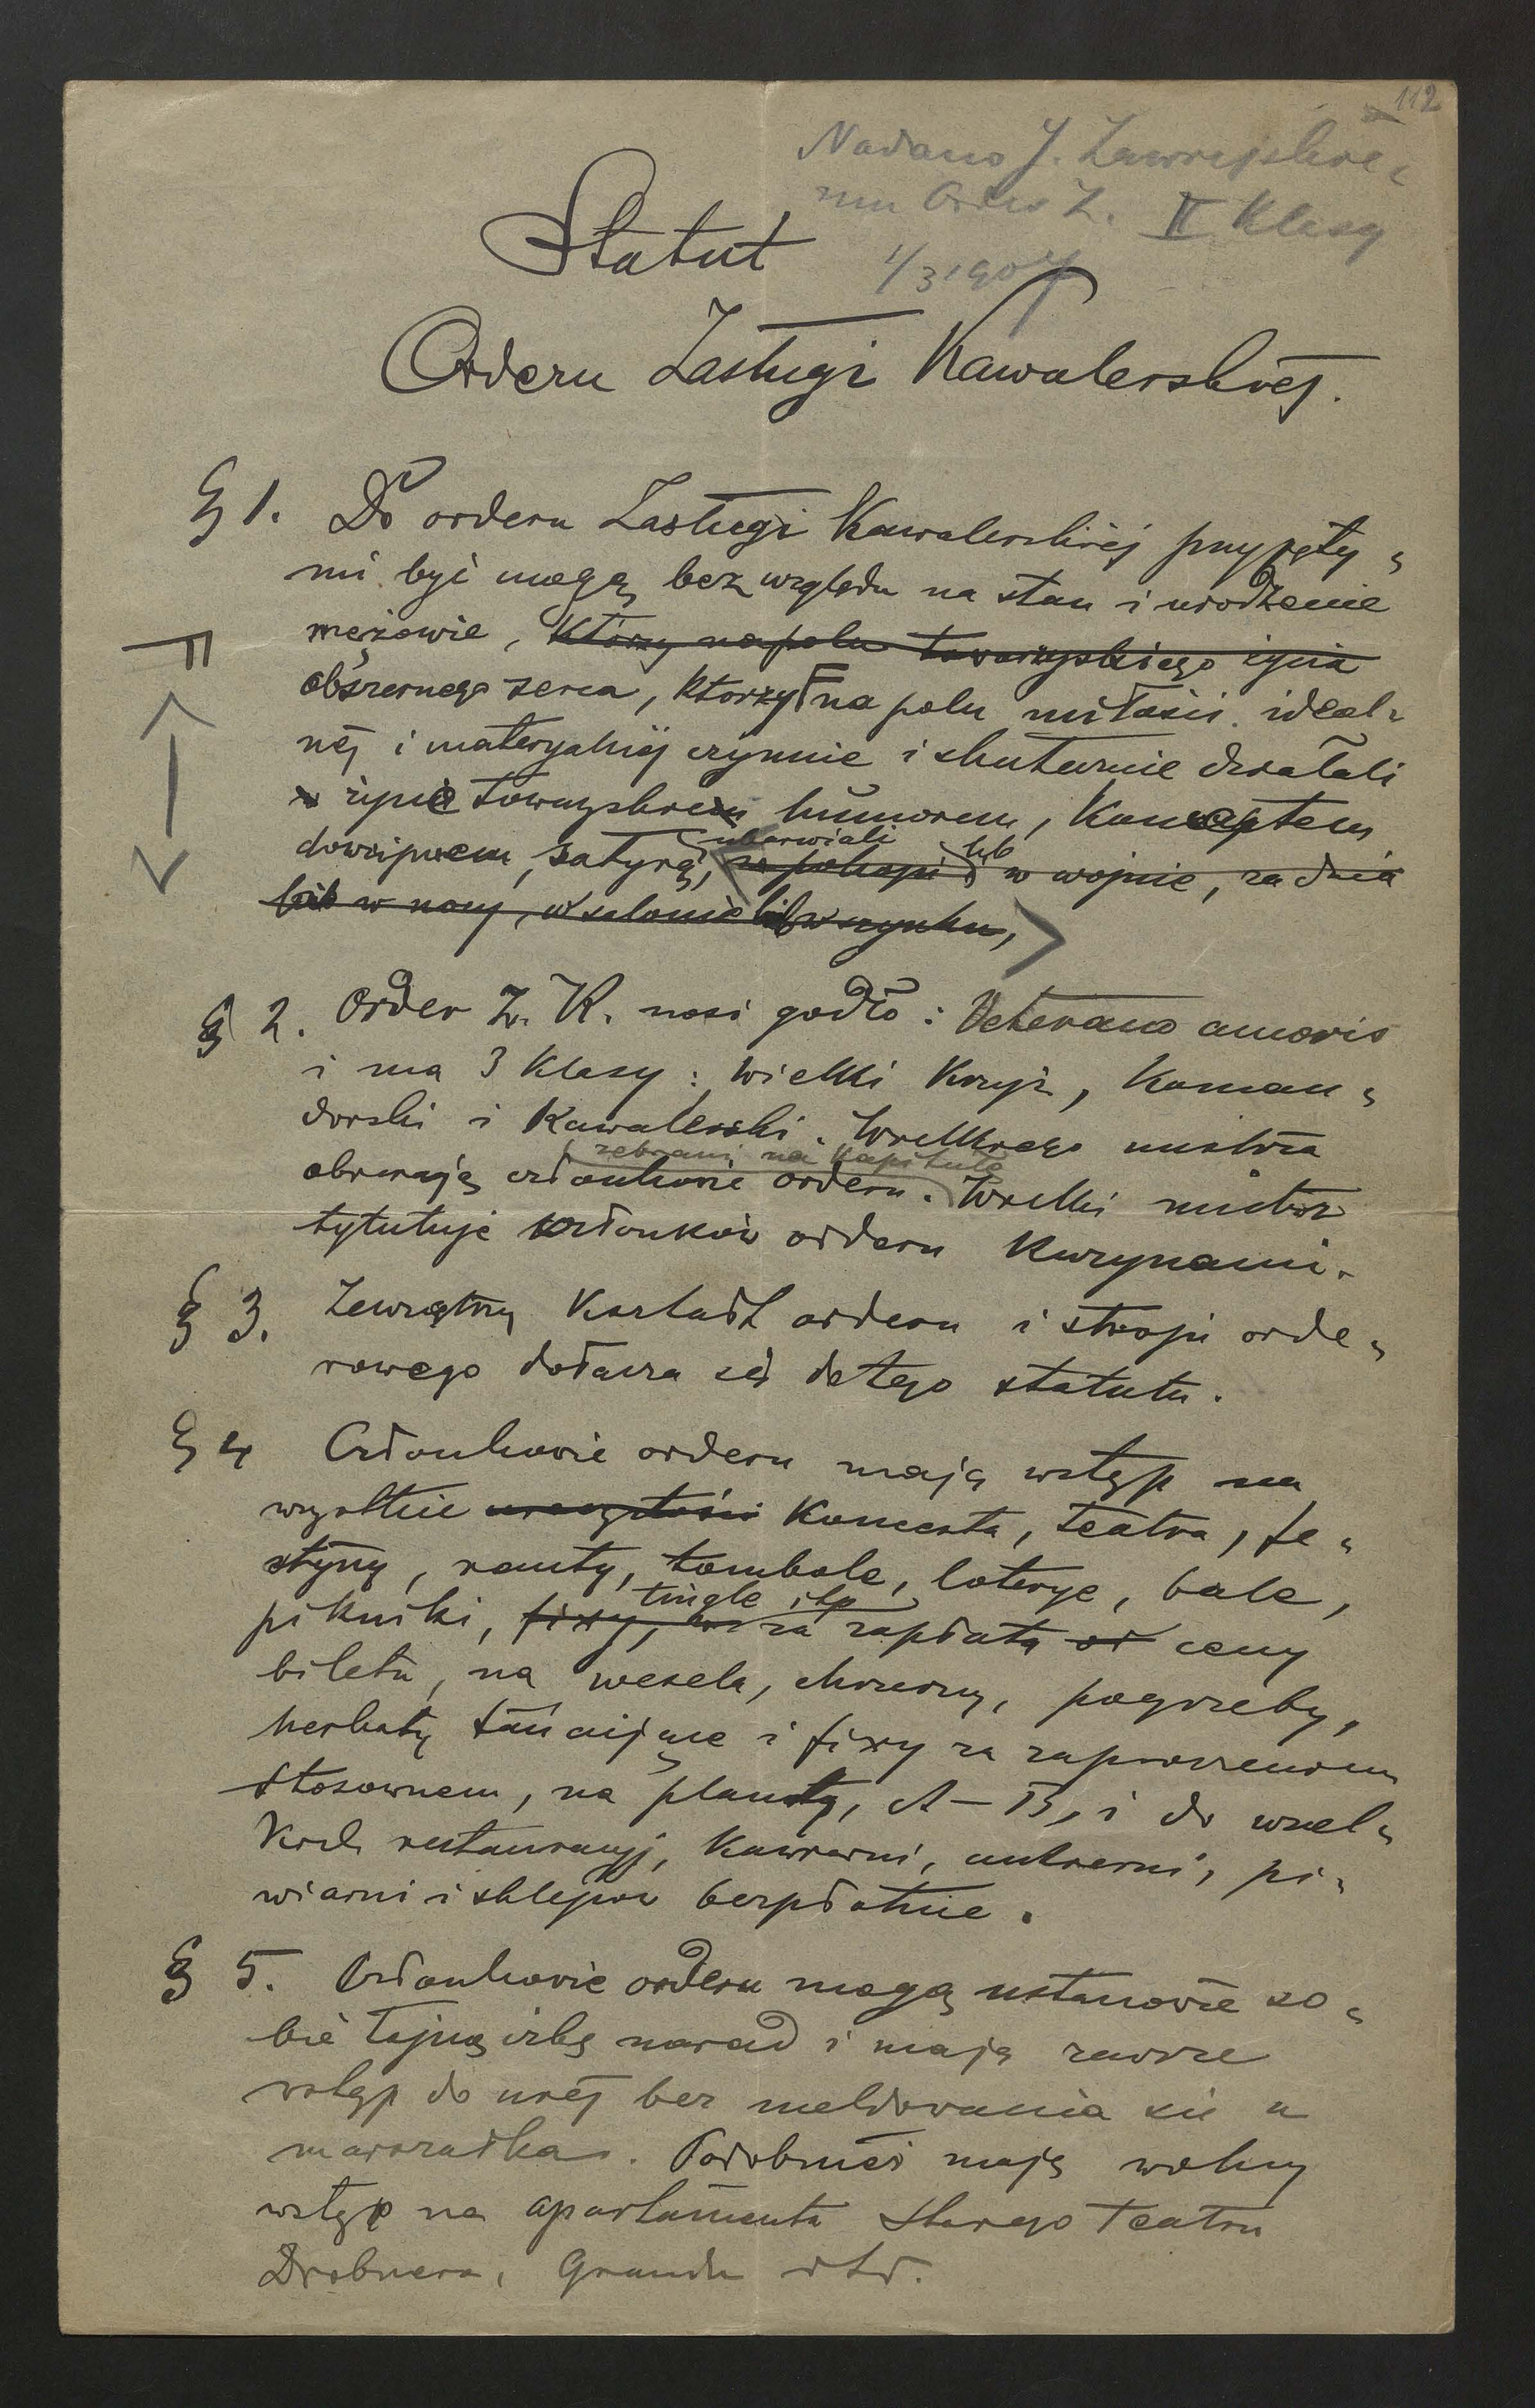 112
Nadano J. Zawiejskie-
mu Order Z. II Klasy
1/3 1907
Statut
Orderu Zasługi Kawalerskiej.
§ 1. Do orderu Zasługi Kawalerskiej przyjęty-
mi być mogą bez względu na stan i urodzenie
mężowie, którzy na polu towarzyskiego życia
obszernego serca, którzy na polu miłości ideal-
nej i materyalnej czynnie i skutecznie działali
życie towarzyskie humorem, konceptem
dowcipem, satyrą, ubarwiali
w pokoju lub w wojnie, za dnia
lub w nocy, w salonie lub w szynku,
§ 2. Order Z. K. nosi godło: Veterano amoris
i ma 3 Klasy: Wielki Krzyż, Koman-
dorski i Kawalerski. Wielkiego mistrza
zebrani na Kapitułę
obierają członkowie orderu. Wielki mistrz
tytułuje członków orderu Kuzynami.
§ 3. Zewnętrzny Kształt orderu i stroju orde-
rowego dołącza się do tego statutu.
§ 4 Członkowie orderu mają wstęp na
wszystkie uroczystości Koncerta, teatra, fe-
styny, rauty, tombole, loterye, bale,
tingle itp
pikniki, fixy, za zapłatą od ceny
biletu, na wesela, chrzciny, pogrzeby,
herbaty tańcujące i fixy za zaproszeniem
stosownem, na planty, A–B, i do wszel-
kich restauracyj, Kawiarni, cukierni, pi-
wiarni i sklepów bezpłatnie.
§ 5. Członkowie orderu mogą ustanowić so-
bie tajną izbę narad i mają zawsze
wstęp do niej bez meldowania się u
marszałka. Podobnież mają wolny
wstęp na apartamenta Starego Teatru
Drobnera, Grandu itd.